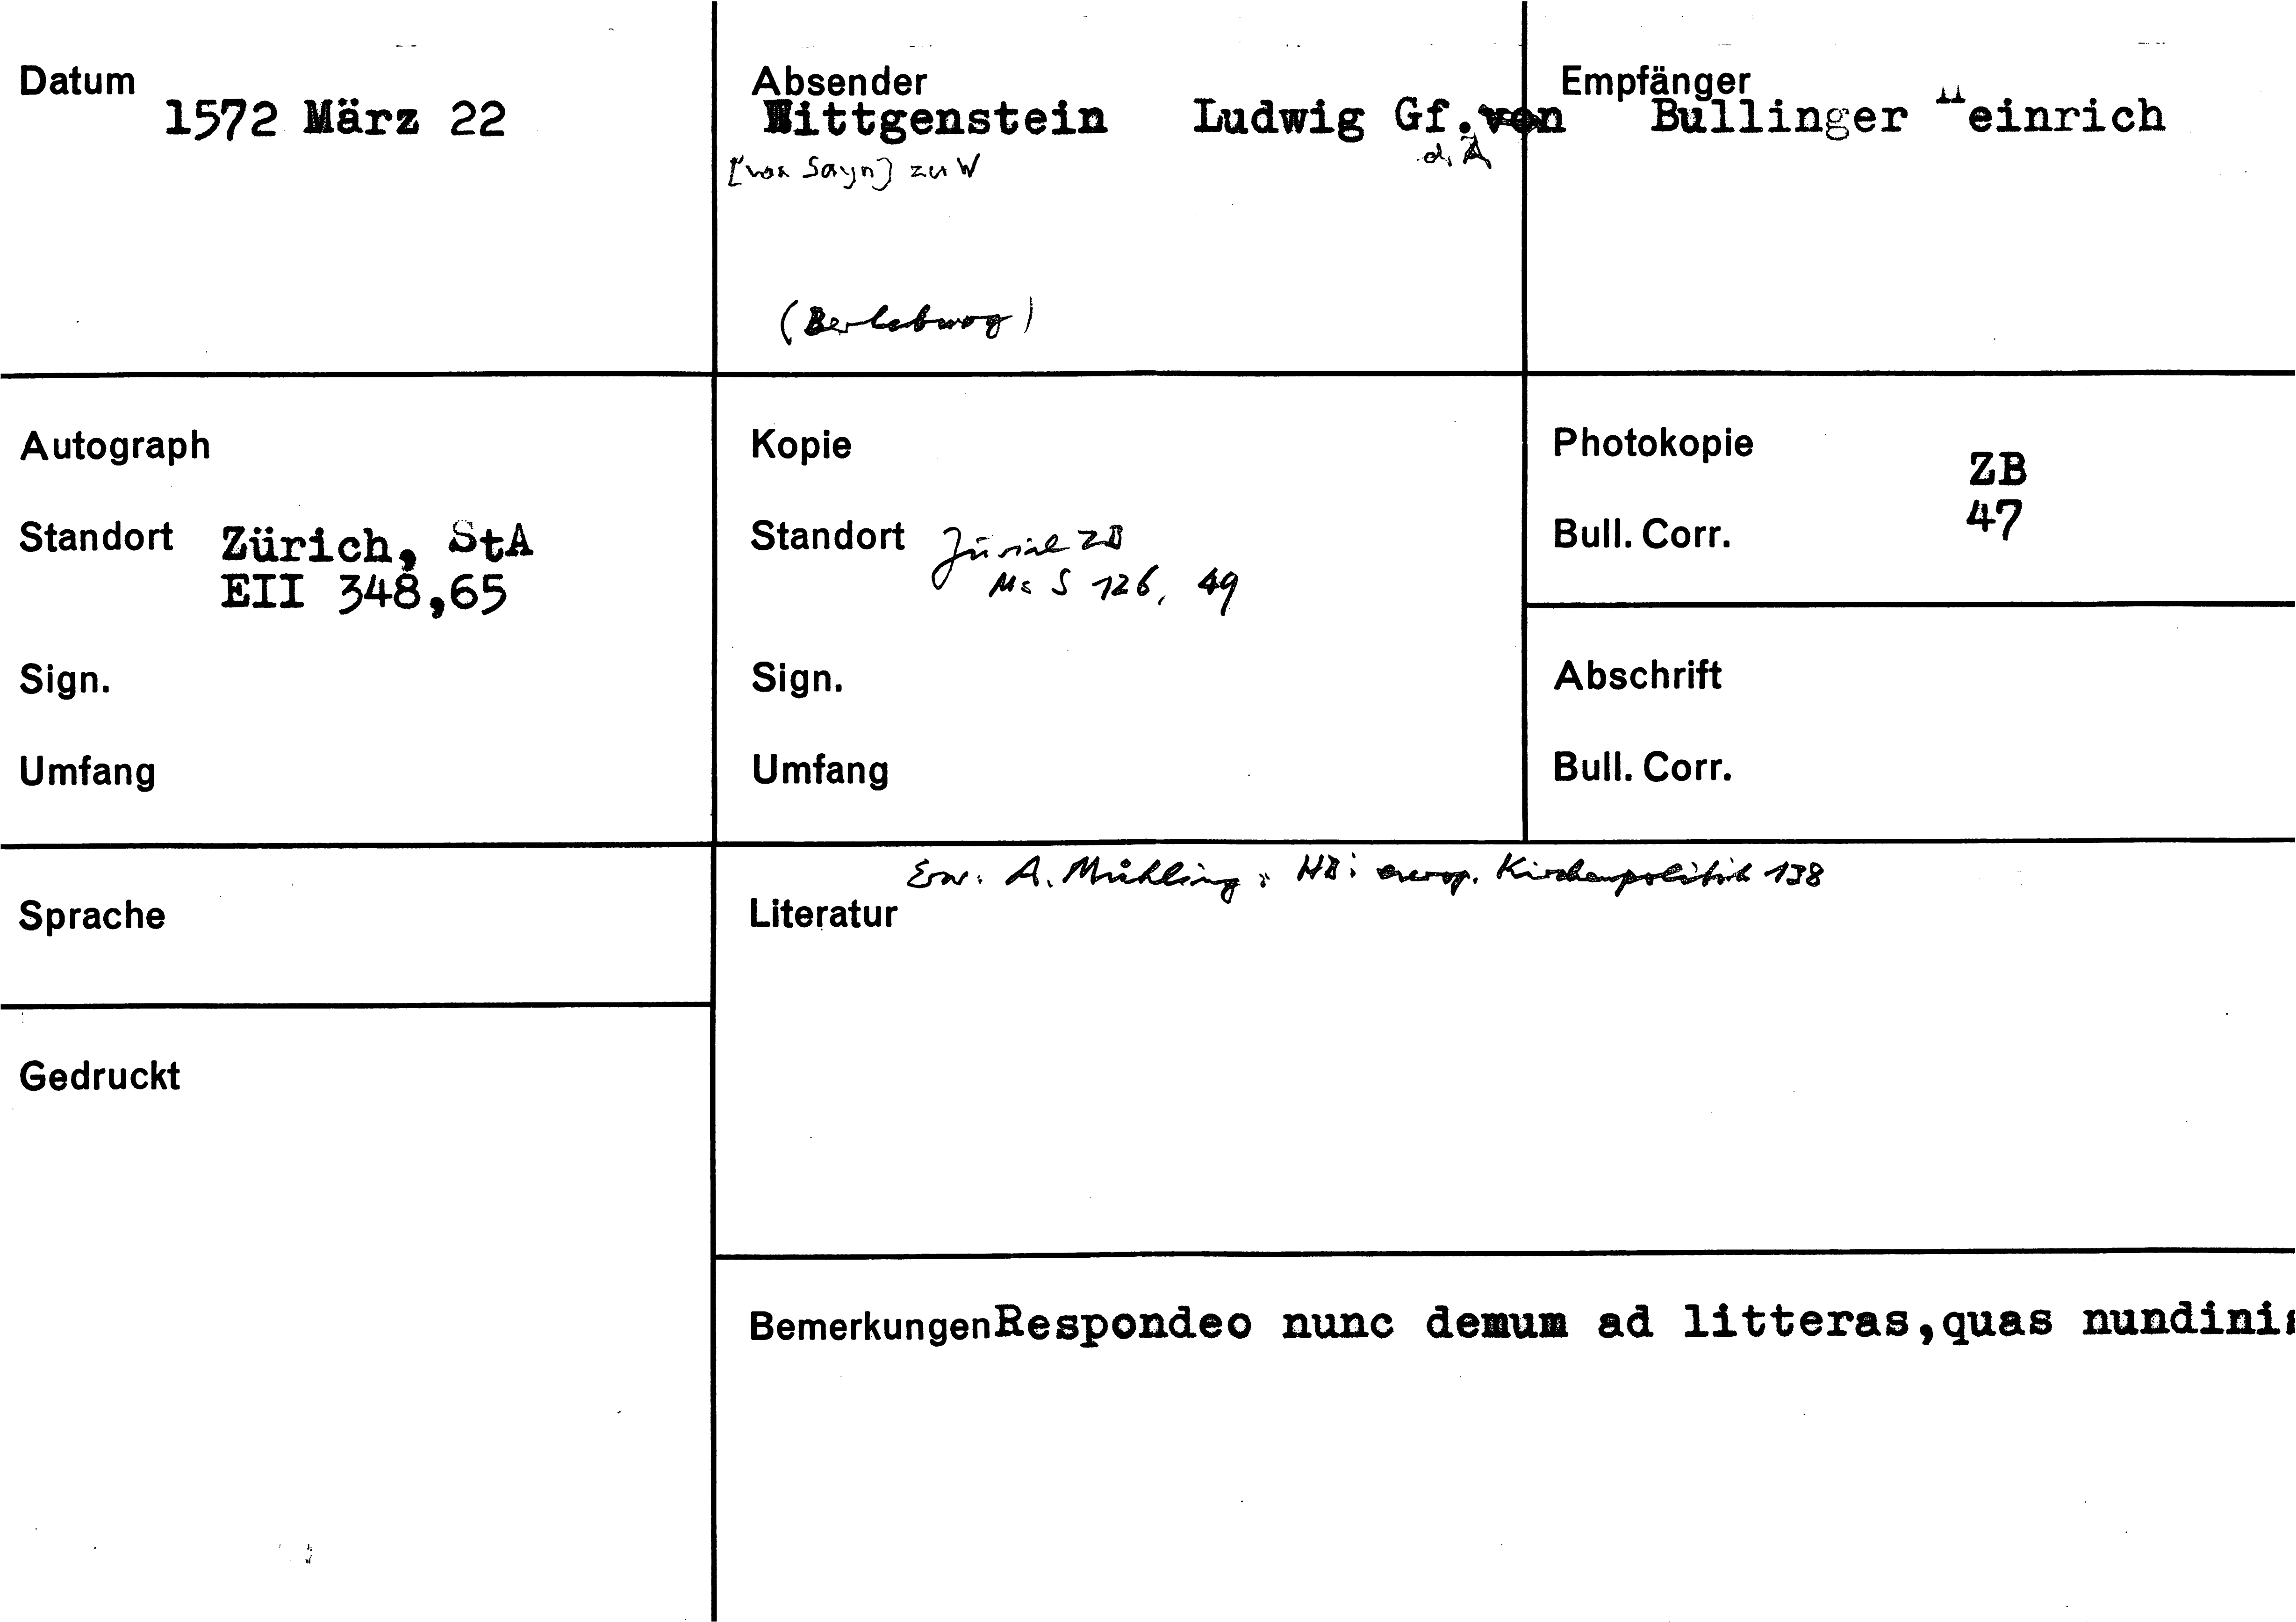 Datum 1572 März 22
Absender Wittgenstein Ludwig Gf. von
d. Ä
[von Sayn] zu W
(Berleburg)
Empfänger Bullinger Heinrich
Autograph
Standort Zürich, StA
EII 348,65
Sign.
Umfang
Kopie
Standort Zürich ZB
Ms S 126, 49
Sign.
Umfang
Photokopie ZB
Bull. Corr. 47
Abschrift
Bull. Corr.
Sprache
Gedruckt
Erw. A. Mühling: HB: europ. Kirchenpolitik 138
Literatur
Bemerkungen Respondeo nunc demum ad litteras,quas nundinis